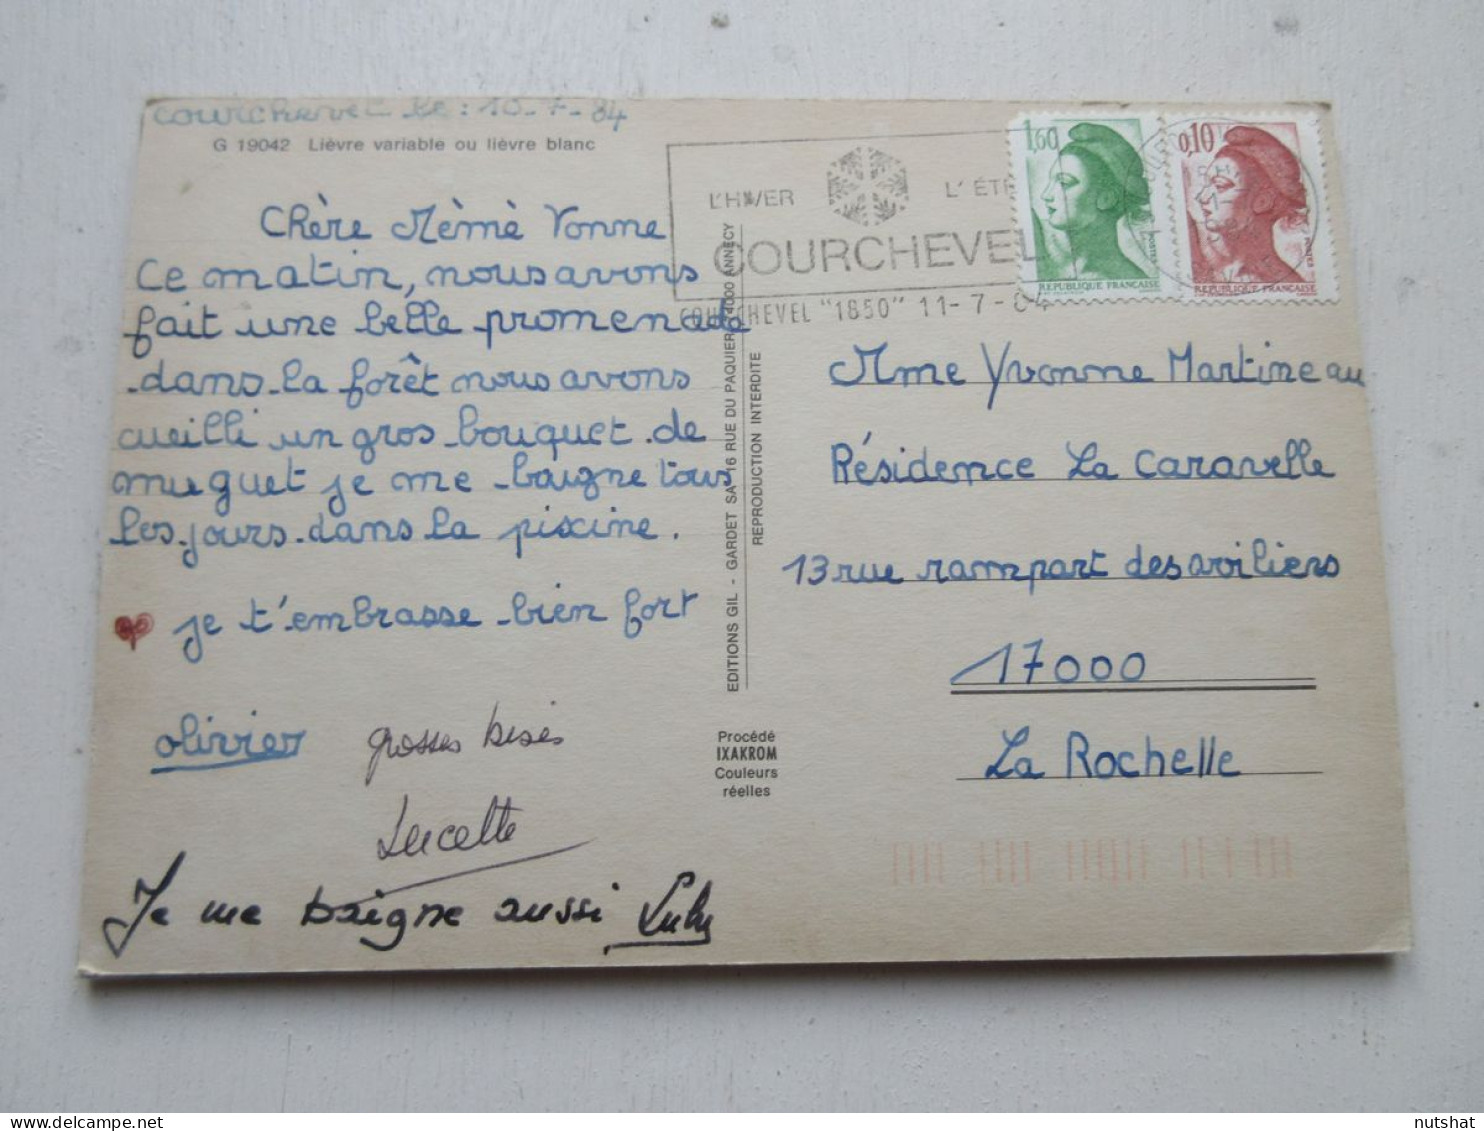 Courchevel le : 10-7-84
G 19042 Lièvre variable ou lièvre blanc
Chère Mèmè Vonne
Ce matin, nous avons
fait une belle promenade
dans la forêt nous avons
cueilli un gros bouquet de
muguet je me baigne tous
les jours dans la piscine.
je t'embrasse bien fort
olivier
grosses bises
Lucette
Je me baigne aussi Lulu
EDITIONS GIL - GARDET SA 16 RUE DU PAQUIER 74000 ANNECY
REPRODUCTION INTERDITE
Procédé
IXAKROM
Couleurs
réelles
L'HIVER L'ÉTÉ
COURCHEVEL
COURCHEVEL "1850" 11-7-84
1,60
POSTES
REPUBLIQUE FRANÇAISE
0,10
POSTES
REPUBLIQUE FRANÇAISE
Mme Yvonne Martineau
Résidence La Caravelle
13 rue rampart des voiliers
17000
La Rochelle
nutshat